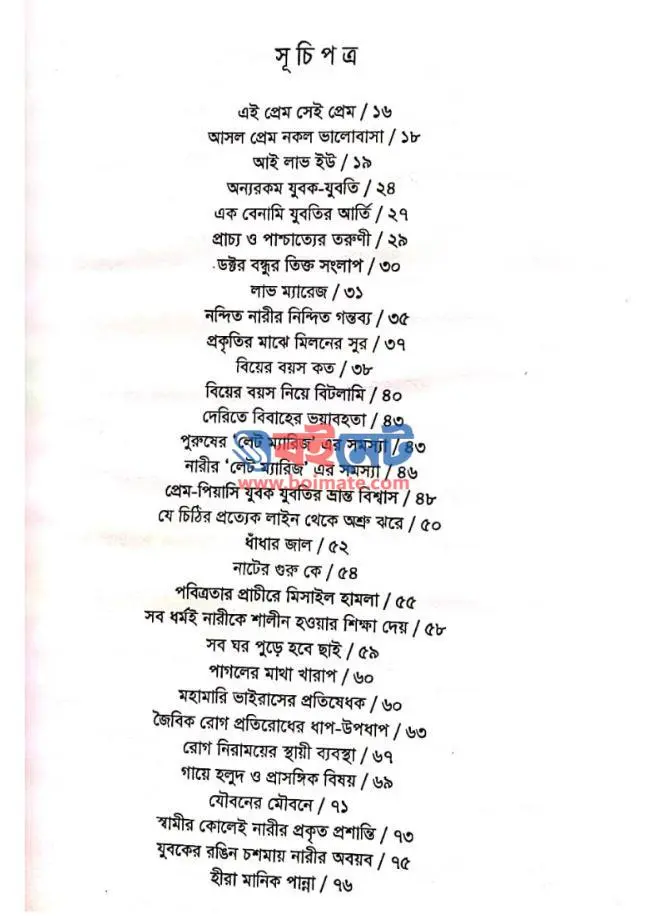 সূচিপত্র
এই প্রেম সেই প্রেম / ১৬
আসল প্রেম নকল ভালোবাসা / ১৮
আই লাভ ইউ / ১৯
অন্যরকম যুবক-যুবতি / ২৪
এক বেনামি যুবতির আর্তি / ২৭
প্রাচ্য ও পাশ্চাত্যের তরুণী / ২৯
ডক্টর বন্ধুর তিক্ত সংলাপ / ৩০
লাভ ম্যারেজ / ৩১
নন্দিত নারীর নিন্দিত গন্তব্য / ৩৫
প্রকৃতির মাঝে মিলনের সুর / ৩৭
বিয়ের বয়স কত / ৩৮
বিয়ের বয়স নিয়ে বিটলামি / ৪০
দেরিতে বিবাহের ভয়াবহতা / ৪৩
পুরুষের ‘লেট ম্যারিজ’ এর সমস্যা / ৪৩
বইমেট
নারীর ‘লেট ম্যারিজ’ এর সমস্যা / ৪৬
www.boimate.com
প্রেম-পিয়াসি যুবক যুবতির ভ্রান্ত বিশ্বাস / ৪৮
যে চিঠির প্রত্যেক লাইন থেকে অশ্রু ঝরে / ৫০
ধাঁধার জাল / ৫২
নাটের গুরু কে / ৫৪
পবিত্রতার প্রাচীরে মিসাইল হামলা / ৫৫
সব ধর্মই নারীকে শালীন হওয়ার শিক্ষা দেয় / ৫৮
সব ঘর পুড়ে হবে ছাই / ৫৯
পাগলের মাথা খারাপ / ৬০
মহামারি ভাইরাসের প্রতিষেধক / ৬০
জৈবিক রোগ প্রতিরোধের ধাপ-উপধাপ / ৬৩
রোগ নিরাময়ের স্থায়ী ব্যবস্থা / ৬৭
গায়ে হলুদ ও প্রাসঙ্গিক বিষয় / ৬৯
যৌবনের মৌবনে / ৭১
স্বামীর কোলেই নারীর প্রকৃত প্রশান্তি / ৭৩
যুবকের রঙিন চশমায় নারীর অবয়ব / ৭৫
হীরা মানিক পান্না / ৭৬